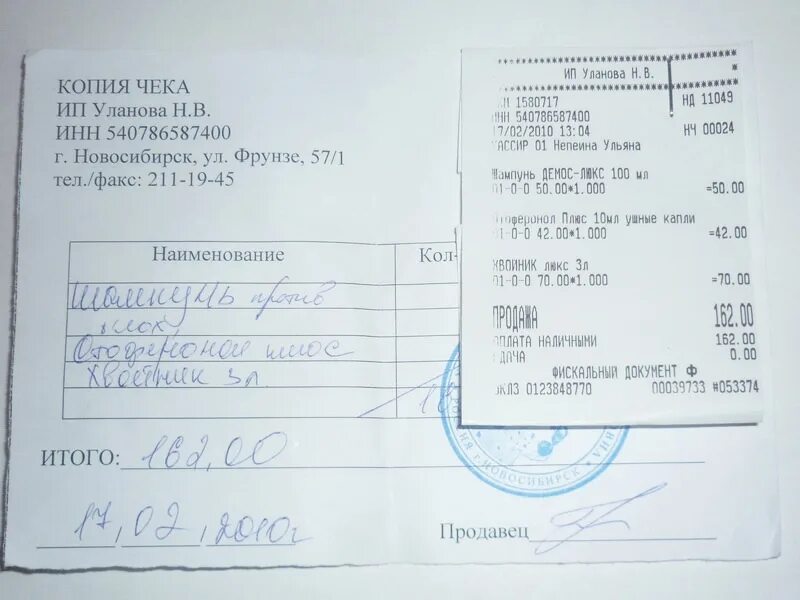 КОПИЯ ЧЕКА
ИП Уланова Н.В.
ИНН 540786587400
г. Новосибирск, ул. Фрунзе, 57/1
тел./факс: 211-19-45
Наименование Кол-
Шампунь против
блох
Отоферонол плюс
Хвойник 3л.
ИТОГО: 162,00
17, 02, 2010г
Продавец
г.НОВОСИБИРСК
ИП Уланова Н.В.
1580717 НД 11049
ИНН 540786587400
17/02/2010 13:04 НЧ 00024
КАССИР 01 Непеина Ульяна
Шампунь ДЕМОС-ЛЮКС 100 мл
01-0-0 50.00*1.000 =50.00
Отоферонол Плюс 10мл ушные капли
01-0-0 42.00*1.000 =42.00
ХВОЙНИК люкс 3л
01-0-0 70.00*1.000 =70.00
ПРОДАЖА 162.00
ОПЛАТА НАЛИЧНЫМИ 162.00
СДАЧА 0.00
ФИСКАЛЬНЫЙ ДОКУМЕНТ Ф
ЭКЛЗ 0123848770 00039733 #053374